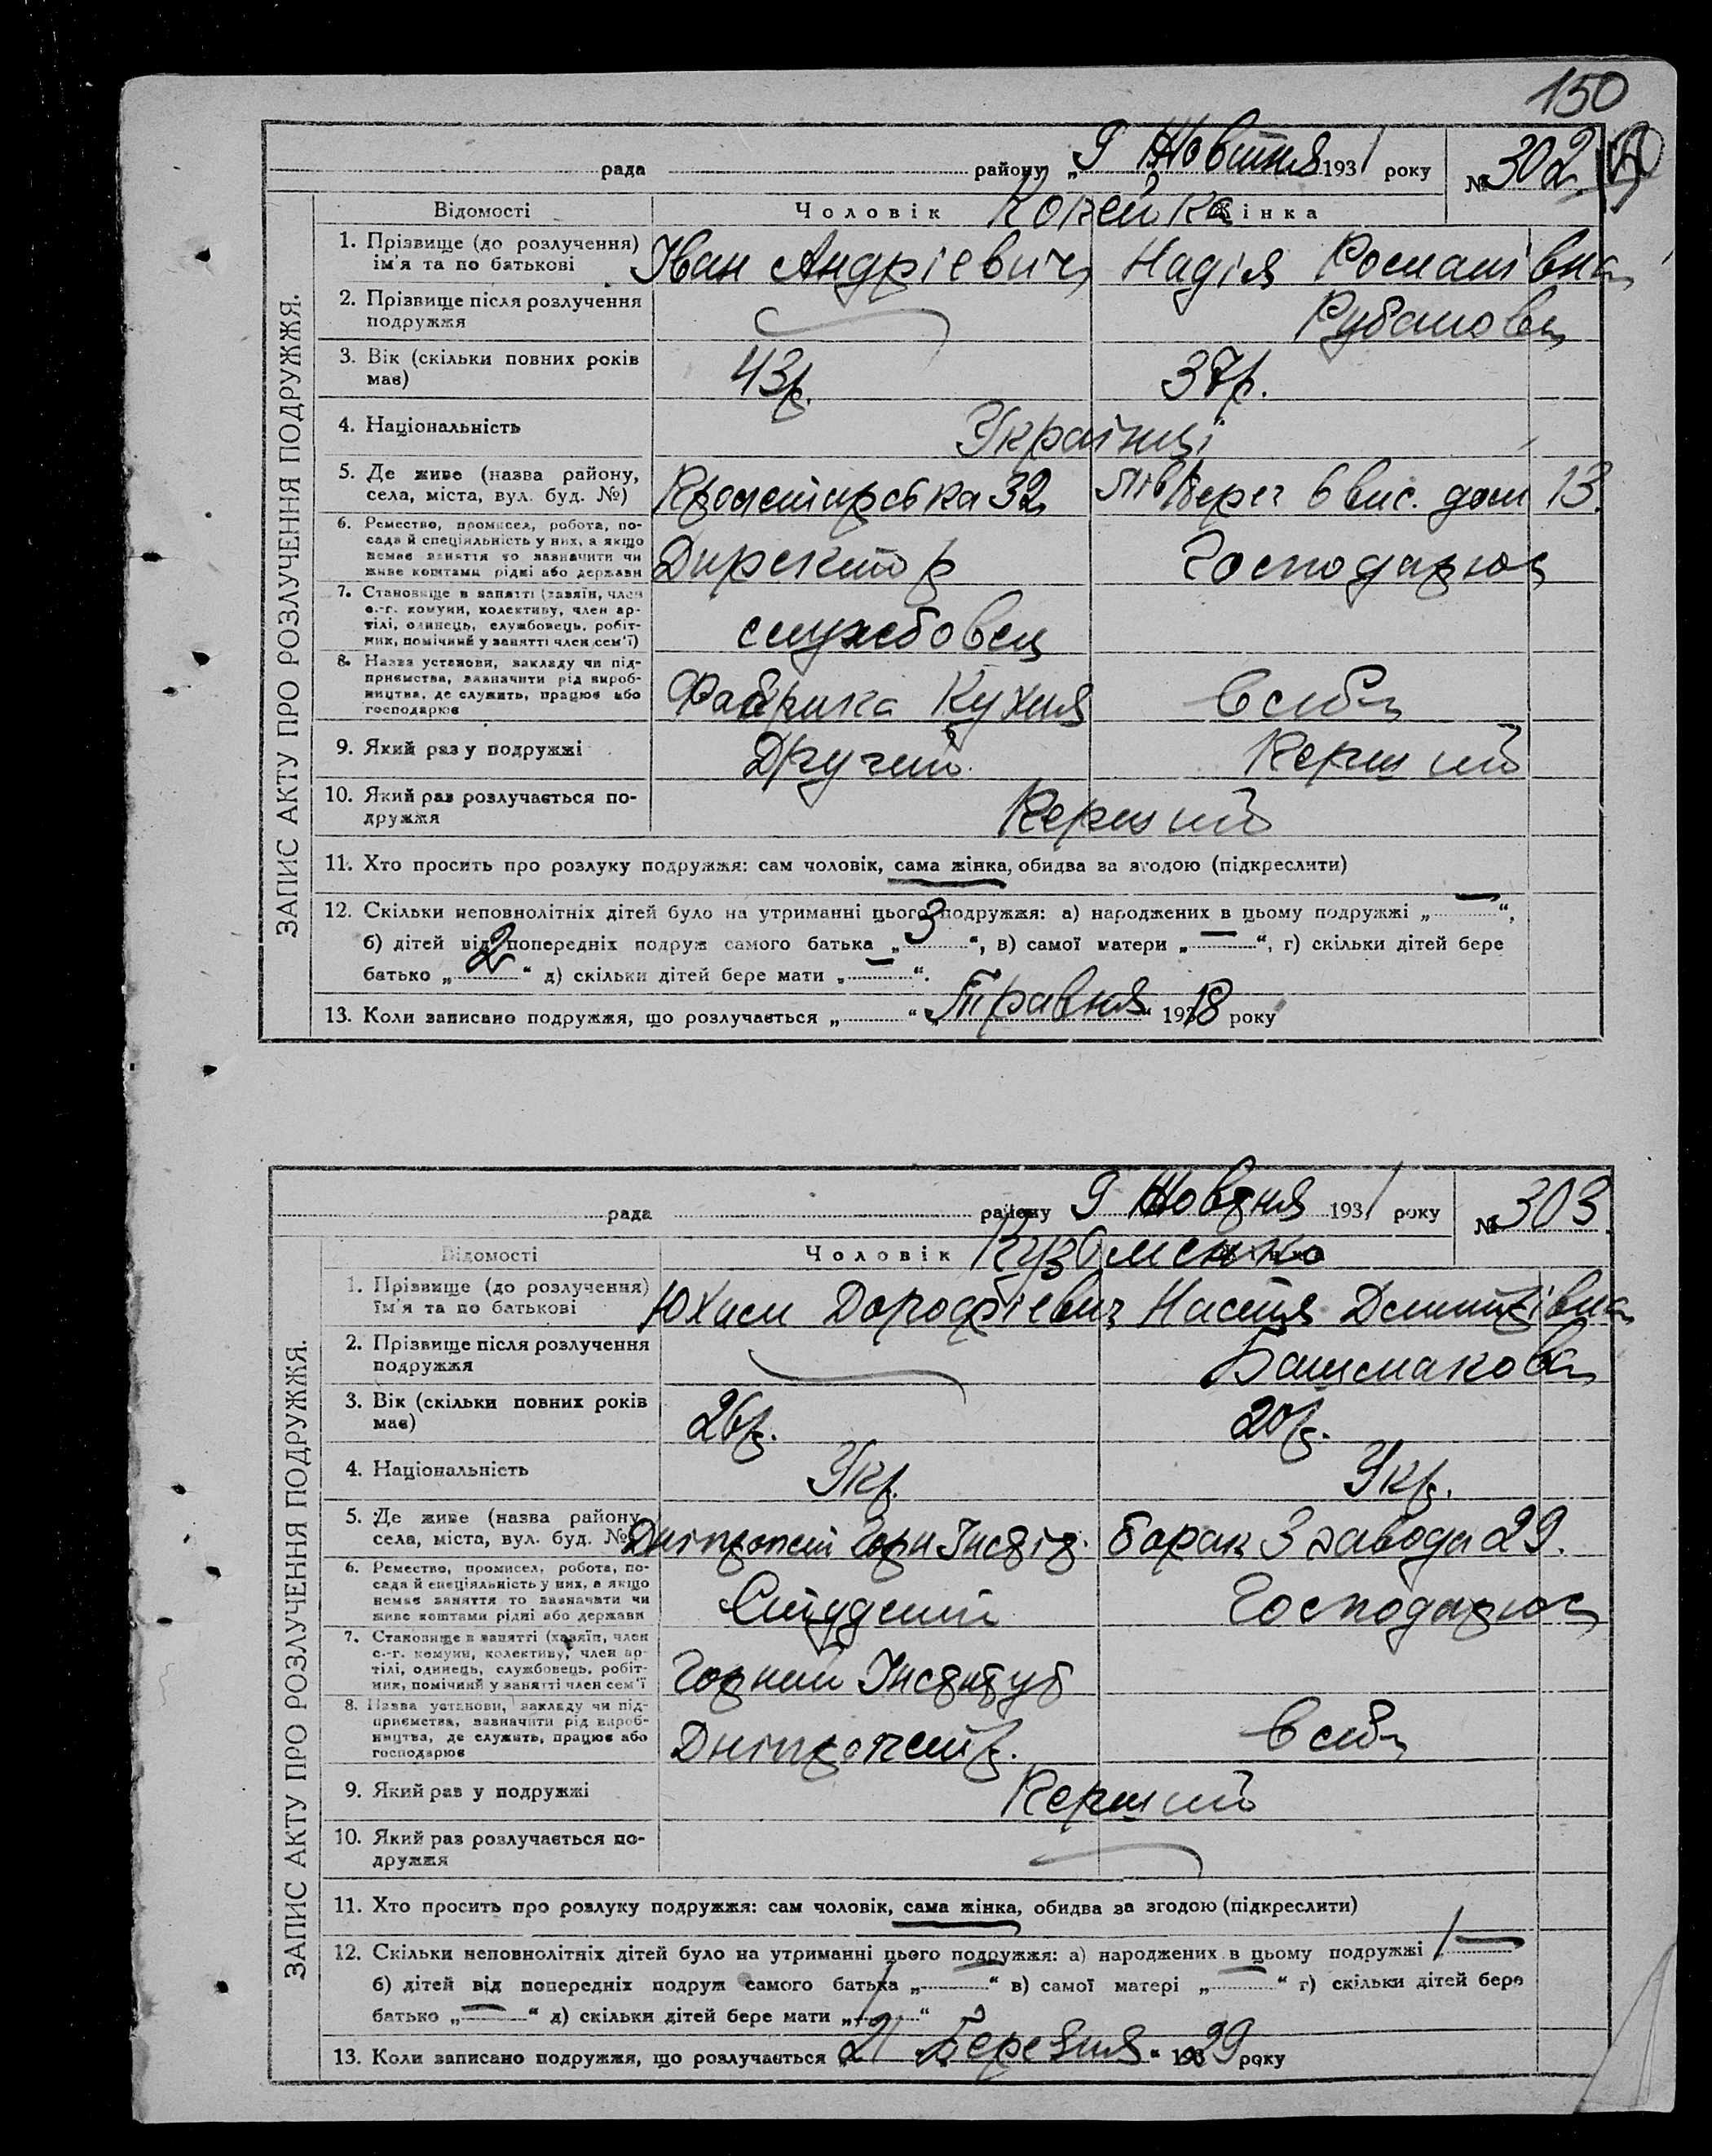 150
рада района „9 Жовтня 1931 року № 302
Відомості Чоловік Копейка Жінка
ЗАПИС АКТУ ПРО РОЗЛУЧЕННЯ ПОДРУЖЖЯ.
1. Прізвище (до розлучення) Іван Андрієвич Надія Романівна
ім'я та по батькові
2. Прізвище після розлучення Рубанова
подружжя
3. Вік (скільки повних років 43р. 37р.
має)
4. Національність Українці
5. Де живе (назва району, Пролетарська 32 Лів берег 6 вис. дом 13.
села, міста, вул. буд. №)
6. Ремество, промисел, робота, по-
сада й спеціяльність у них, а якщо Директор Господарює
немає заняття то зазначити чи
живе коштами рідні або держави
7. Становище в занятті (хазяїн, член
с.-г. комуни, колективу, член ар-
тілі, одинець, службовець, робіт- службовец
ник, помічний у занятті член сем'ї)
8. Назва установи, закладу чи під-
приємства, зазначити рід вироб- Фабрика Кухня
ництва, де служить, працює або
господарює
9. Який раз у подружжі Другий Перший
10. Який раз розлучається по- Перший
дружжя
11. Хто просить про розлуку подружжя: сам чоловік, сама жінка, обидва за згодою (підкреслити)
12. Скільки неповнолітніх дітей було на утриманні цього подружжя: а) народжених в цьому подружжі „—“,
б) дітей від попередніх подруж самого батька „3“, в) самої матери „—“, г) скільки дітей бере
батько „2“ д) скільки дітей бере мати „—“.
13. Коли записано подружжя, що розлучається „ “ „Травня“ 1918 року
рада району 9 Жовтня 1931 року № 303
Відомості Чоловік Кузьменко
ЗАПИС АКТУ ПРО РОЗЛУЧЕННЯ ПОДРУЖЖЯ.
1. Прізвище (до розлучення) Юхим Дорофієвич Настя Дмитрівна
ім'я та по батькові
2. Прізвище після розлучення Башмакова
подружжя
3. Вік (скільки повних років 26р. 20р.
має)
4. Національність Укр. Укр.
5. Де живе (назва району, Дніпропет Горн Інстіт. барак 3 завода 29.
села, міста, вул. буд. №)
6. Ремество, промисел, робота, по-
сада й спеціяльність у них, а якщо Студент Господарює
немає заняття то зазначити чи
живе коштами рідні або держави
7. Становище в занятті (хазяїн, член
с.-г. комуни, колективу, член ар-
тілі, одинець, службовець, робіт- Горний Інститут
ник, помічний у занятті член сем'ї
8. Назва установи, закладу чи під-
приємства, зазначити рід вироб-
ництва, де служить, працює або Дніпропетр.
господарює
9. Який раз у подружжі Перший
10. Який раз розлучається по-
дружжя
11. Хто просить про розлуку подружжя: сам чоловік, сама жінка, обидва за згодою (підкреслити)
12. Скільки неповнолітніх дітей було на утриманні цього подружжя: а) народжених в цьому подружжі 1 —
б) дітей від попередніх подруж самого батька „—“ в) самої матері „—“ г) скільки дітей бере
батько „—“ д) скільки дітей бере мати „1“
13. Коли записано подружжя, що розлучається 21 Березня 1929 року